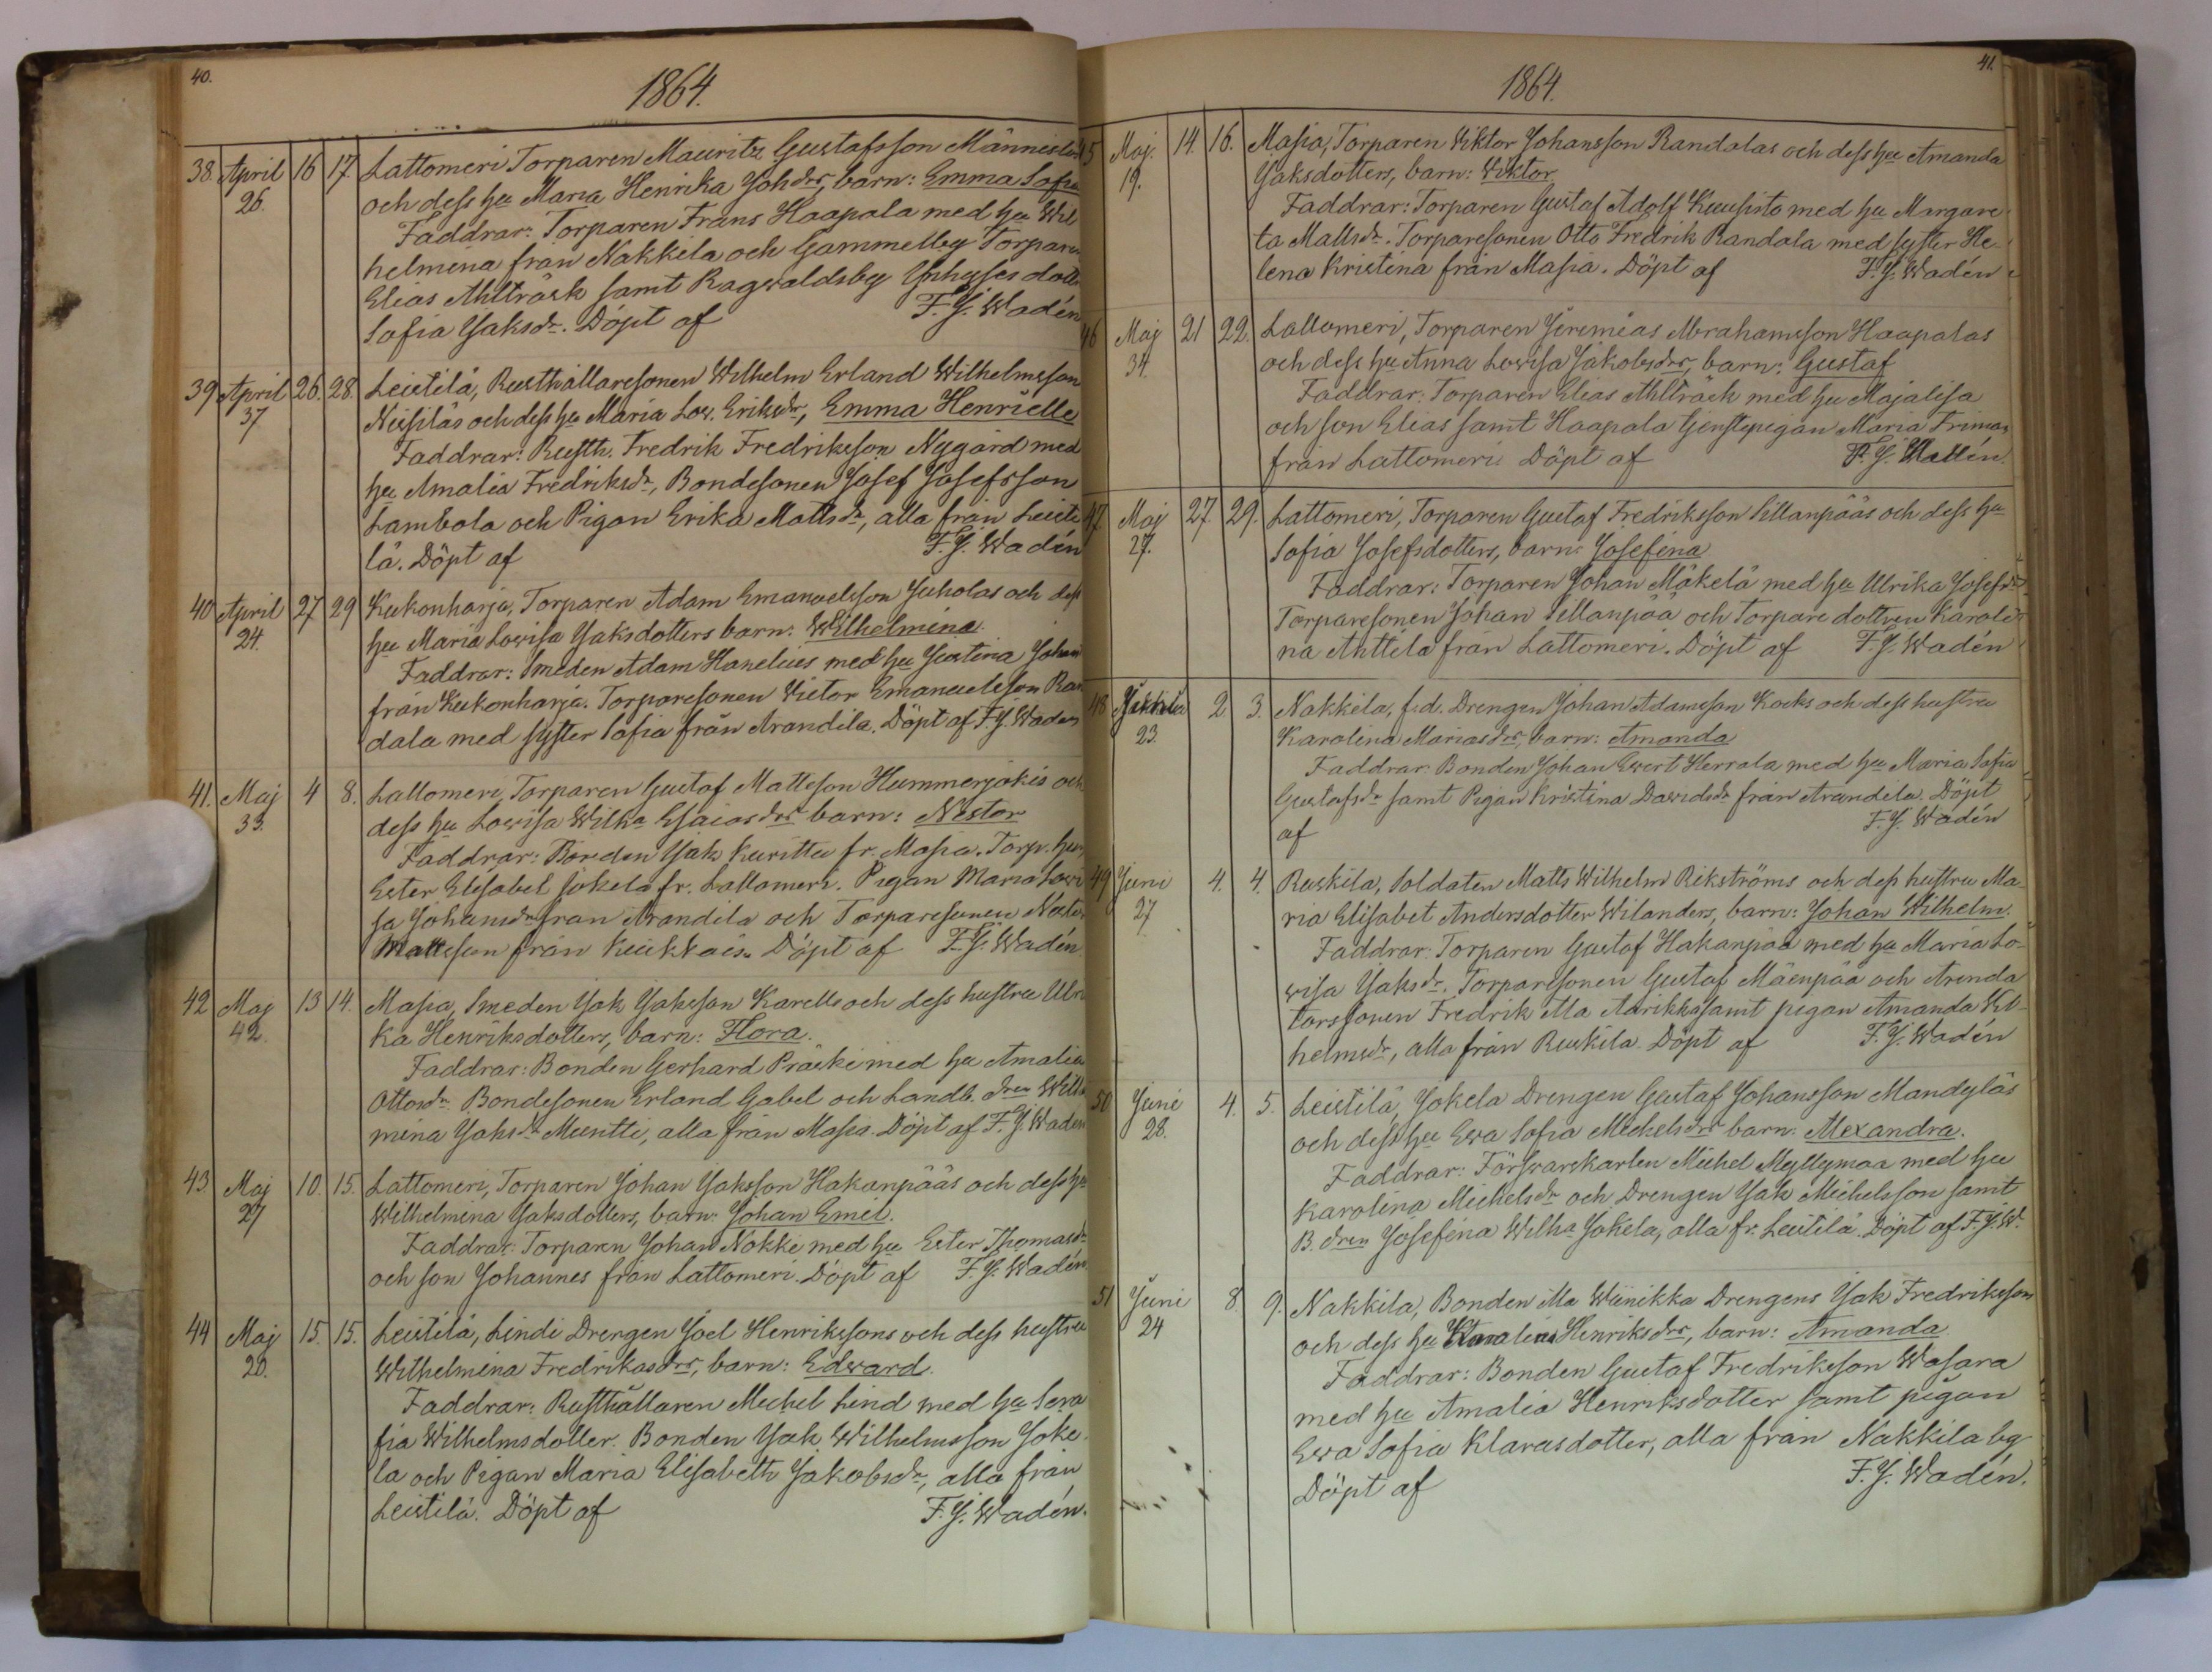 40.
1864.
38. April 16 17 Lattomeri Torparen Mauritz Gustafsson
26. och dess hu Maria Henrika Johdrs, barn: Emma Sofia
Faddrar: Torparen Frans Haapala med hu Wil
helmina från Nakkila och Gammelby Torparen
Elias Ahlträsk samt Ragwaldsby
Sofia Jaksdr. Döpt af F. J. Wadén
39 April 26. 28. Leistilä, Rusthållaresonen Wilhelm Erland Wilhelmsson
37 och dess hu Maria Low. Eriksdr, Emma Henriette
Faddrar: Rusth. Fredrik Fredriksson Nygård med
hu Amalia Fredriksdr, Bondesonen Josef Josefsson
Lambola och Pigan Erika Mattsdr, alla från Leisti
lä. Döpt af F. J. Wadén
40 April 27 29 Kukonharja, Torparen Adam Emanuelsson Juholas och dess
24. hu Maria Lowisa Jaksdotters barn: Wilhelmina.
Faddrar: Smeden Adam Hanelius med hu Justina
från Kukonharja. Torparesonen Victor Emanuelsson Ran
dala med syster Sofia från Arandila. Döpt af F. J. Wadén
41. Maj 4 8. Lattomeri, Torparen Gustaf Mattsson Hummerjokis och
33. dess hu Lowisa Wilhа Esaiasdrs barn: Nestor
Faddrar: Bonden Jak Kuritta fr. Masia. Torp. hu
Ester Elisabet Jokela fr. Lattomeri. Pigan Maria Lowi
sa Johansdr från Arandila och Torparesonen Nestor
Mattsson från Kukkais. Döpt af F. J. Wadén
42 Maj 13 14. Masia, Smeden Jak Jaksson Karells och dess hustru Ulri
42. ka Henriksdotters, barn: Flora.
Faddrar: Bonden Gerhard Präski med hu Amalia
Ottosdr. Bondesonen Erland Gabel och Landb. dren Wilhel
mina Jaksdr Muntti, alla från Masia. Döpt af F. J. Wadén
43 Maj 10. 15. Lattomeri, Torparen Johan Jaksson Hakanpääs och dess hu
27 Wilhelmina Jaksdotters, barn: Johan Emil.
Faddrar: Torparen Johan Nokki med hu Ester Thomasdr
och son Johannes från Lattomeri. Döpt af F. J. Wadén.
44 Maj 15. 15. Leistilä, Lindi Drengen Joel Henrikssons och dess hustru
20. Wilhelmina Fredrikasdrs, barn: Edward.
Faddrar: Rusthållaren Michel Lind med hu Sera
fia Wilhelmsdotter. Bonden Jak Wilhelmsson Joke
la och Pigan Maria Elisabeth Jakobsdr, alla från
Leistilä. Döpt af F. J. Wadén.
41.
1864.
45 Maj. 14. 16. Masia, Torparen Wiktor Johansson Randalas och dess hu Amanda
19. Jaksdotters, barn: Wiktor
Faddrar: Torparen Gustaf Adolf Kuusisto med hu Margare
ta Mattsdr. Torparesonen Otto Fredrik Randala med syster He-
lena Kristina från Masia. Döpt af F. J. Wadén
46 Maj 21 22. Lattomeri, Torparen Jeremias Abrahamsson Haapalas
34. och dess hu Anna Lowisa Jakobsdrs, barn: Gustaf
Faddrar: Torparen Elias Ahlträsk med hu Majalisa
och son Elias samt Haapala tjenstepigan Maria Friman
från Lattomeri Döpt af F. J. Wadén.
47. Maj 27. 29. Lattomeri, Torparen Gustaf Fredriksson Sillanpääs och dess hu
27. Sofia Josefsdotters, barn: Josefina
Faddrar: Torparen Johan Mäkelä med hu Ulrika Josefsdr
Torparesonen Johan Sillanpää och Torpare dottren Karoli
na Anttila från Lattomeri. Döpt af F. J. Wadén
48 2 3. Nakkila, f.d. Drengen Johan Adamsson Kocks och dess hustru
23. Karolina Mariasdrs, barn: Amanda
Faddrar: Bonden Johan Ewert Herrala med hu Maria Sofia
Gustafsdr samt Pigan Kristina Dawidsdr från Arandila. Döpt
af F. J. Wadén
49 Juni 4. 4. Ruskila, Soldaten Matts Wilhelm Rikströms och dess hustru Ma-
27 ria Elisabet Andersdotter Wilanders, barn: Johan Wilhelm.
Faddrar: Torparen Gustaf Hakanpää med hu Maria Lo-
wisa Jaksdr. Torparesonen Gustaf Mäenpää och Arenda
torssonen Fredrik Ala Aarikka samt pigan Amanda Wil-
helmsdr, alla från Ruskila. Döpt af F. J. Wadén
50 Juni 4. 5. Leistilä, Jokela Drengen Gustaf Johansson Mandyläs
28. och dess hu Ewa Sofia Michelsdrs barn: Alexandra.
Faddrar: Förswarskarlen Michel Myllymaa med hu
Karolina Michelsdr och Drengen Jak Michelsson samt
B. dren Josefina Wilha Jokela, alla fr. Leistilä. Döpt af F. J. W.
51 Juni 8. 9. Nakkila, Bonden Ala Wiinikka Drengens Jak Fredriksson
24 och dess hu Henriksdrs, barn: Amanda
Faddrar: Bonden Gustaf Fredriksson Wasara
med hu Amalia Henriksdotter samt pigan
Ewa Sofia Klarasdotter, alla från Nakkila by
Döpt af F. J. Wadén.